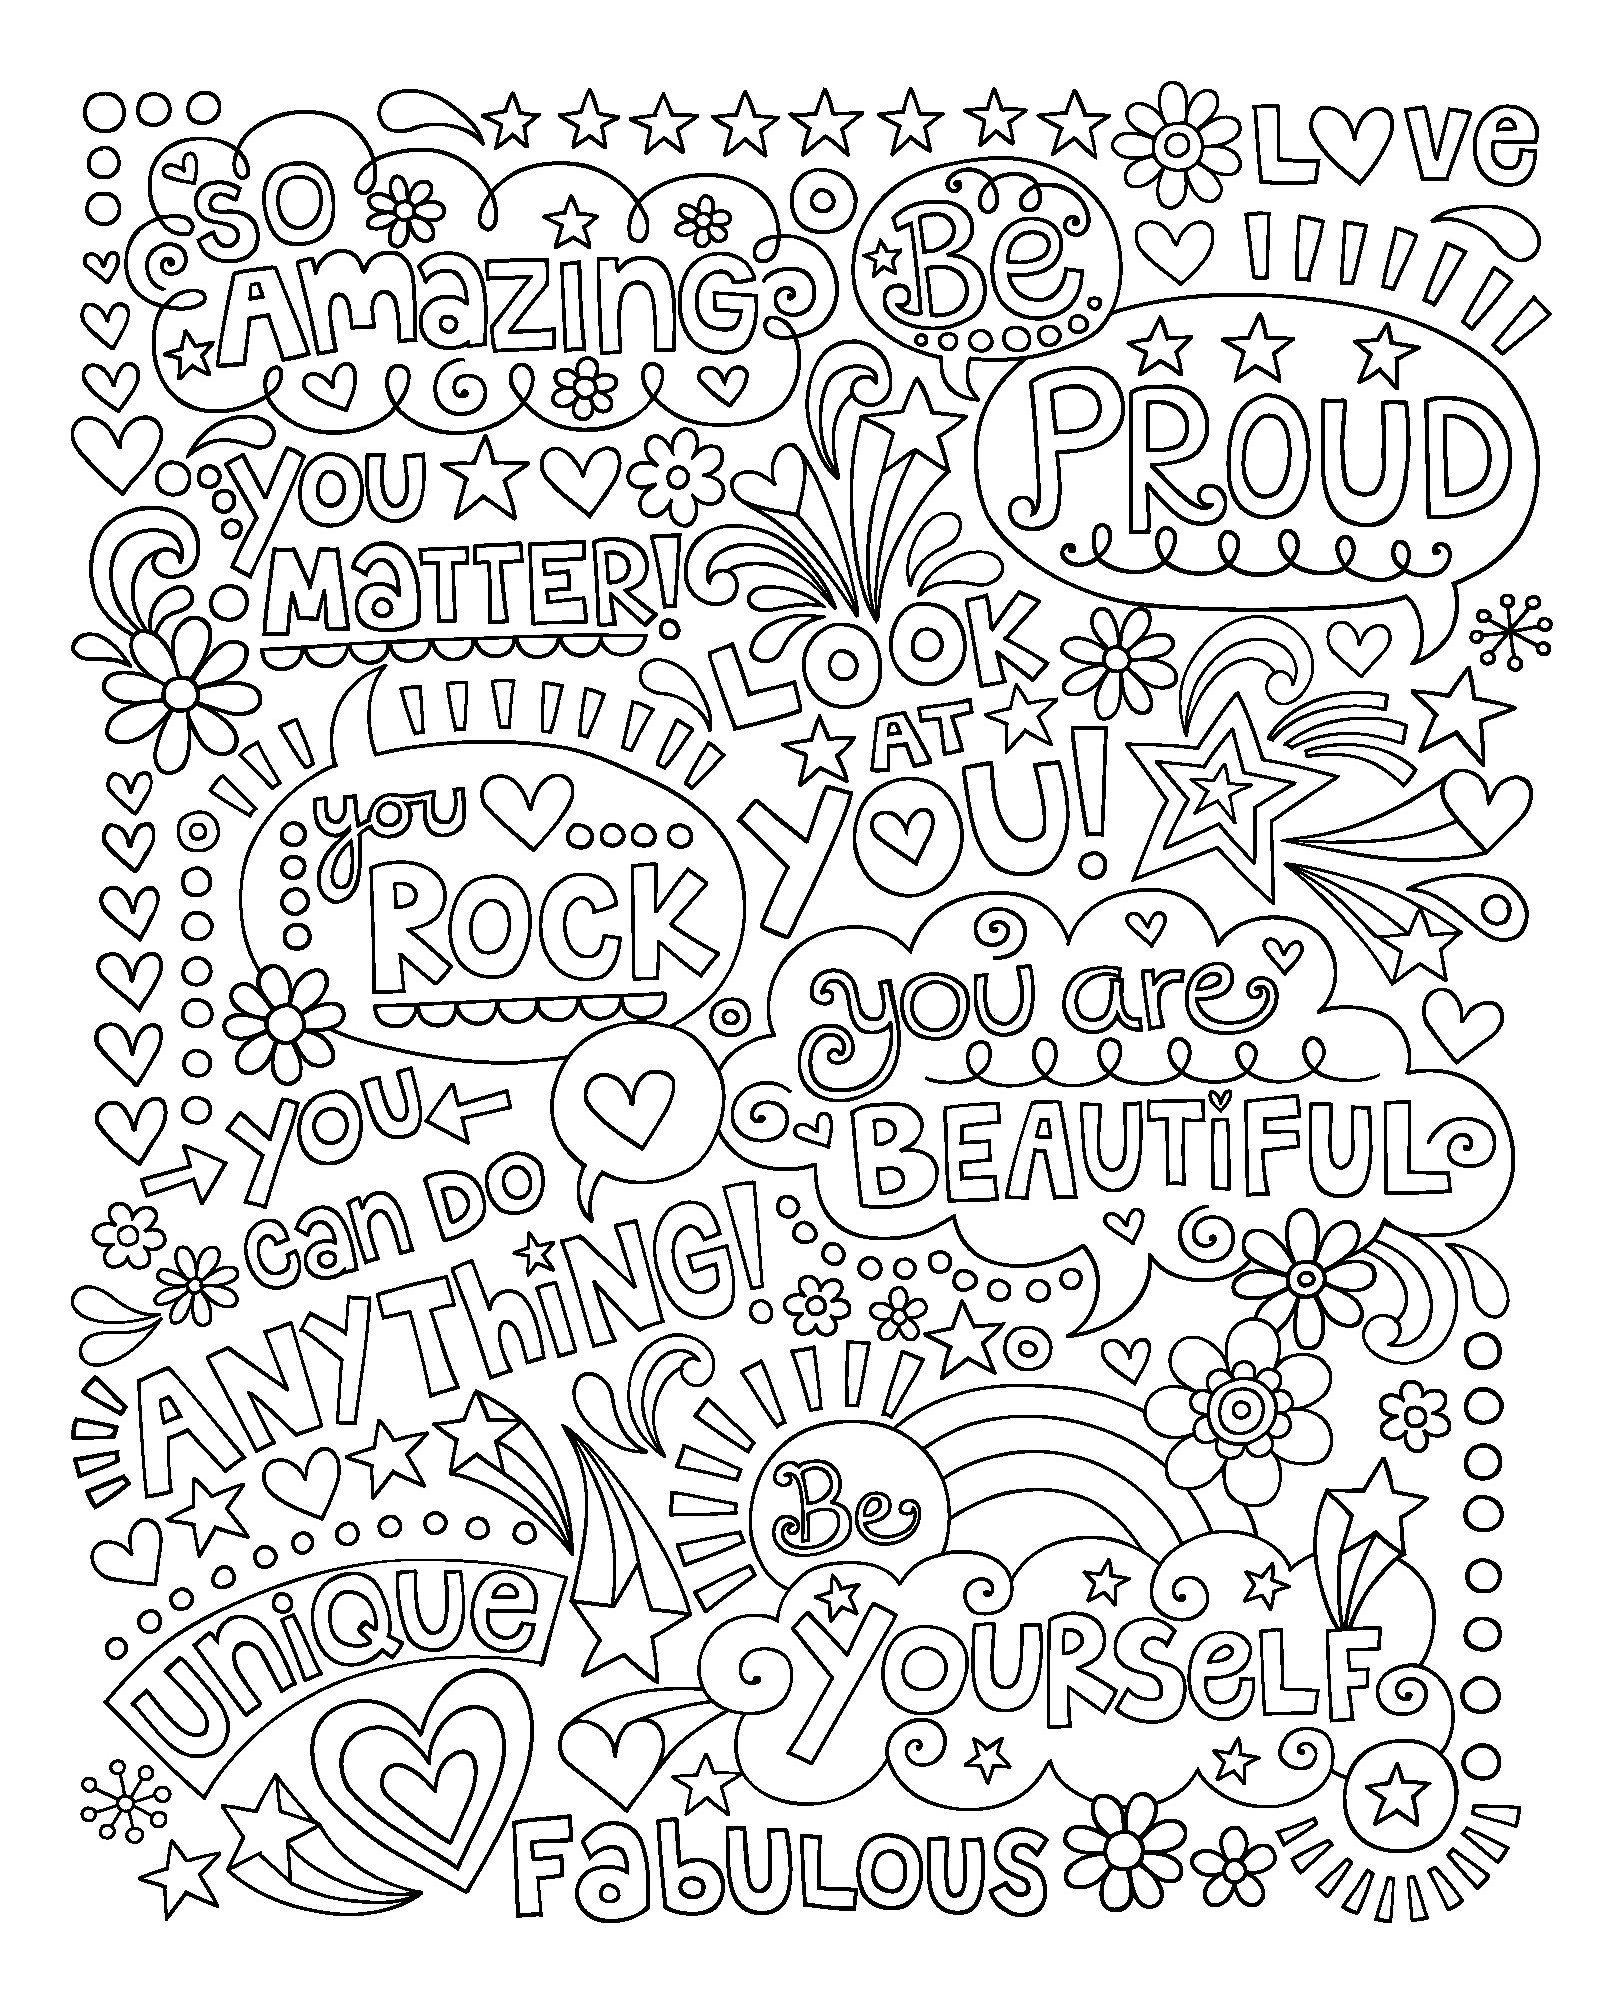 LOVE
SO
AMaZING
Be
PROUD
YOU
MaTTER!
LOOK
AT
YOU!
you
ROCK
you are
BEAUTiFUL
YOU
can DO
ANYThiNG!
Be
YOURSeLF
UniQUe
FabULOUS